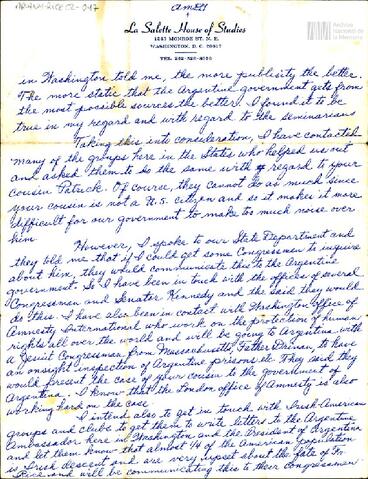 AM6
La Salette House of Studies
1243 MONROE ST. N. E.
WASHINGTON, D. C. 20017
Archivo
Nacional de
la Memoria
in Washington told me, the more publicity the better.
The more static that the Argentine government gets from
the most possible sources the better. I found it to be
true in my regard and with regard to the seminarians
Taking this into consideration, I have contacted
many of the groups here in the States who helped us out
and asked them to do the same with regard to your
cousin Patrick. Of course, they cannot do as much since
your cousin is not a U.S. citizen and so it makes it more
difficult for our government to make too much noise over
him.
However, I spoke to our State Department and
they told me that if I could get some Congressmen to inquire
about him, they would communicate this to the Argentine
government. So I have been in touch with the offices of several
Congressmen and Senator Kennedy and they said they would
do this. I have also been in contact with Washington Office of
Amnesty International who work on the protection of human
rights all over the world and will be going to Argentina with
a Jesuit Congressman from Massachusetts, Father Drinan, to have
an onsight inspection of Argentine prisons etc. They said they
would present the case of your cousin to the government of
Argentina. I know that the London office of Amnesty is also
working hard on the case.
I intend also to get in touch with Irish American
groups and clubs to get them to write letters to the Argentine
Ambassador here in Washington and the President of Argentina
and let them know that almost 1/4 of the American population
is Irish descent and are very upset about the fate of Fr.
Rice and will be communicating this to their Congressmen